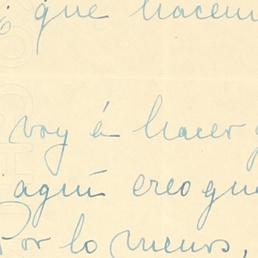 que hacem
voy á hacer q
aquí creo que
Por lo menos,